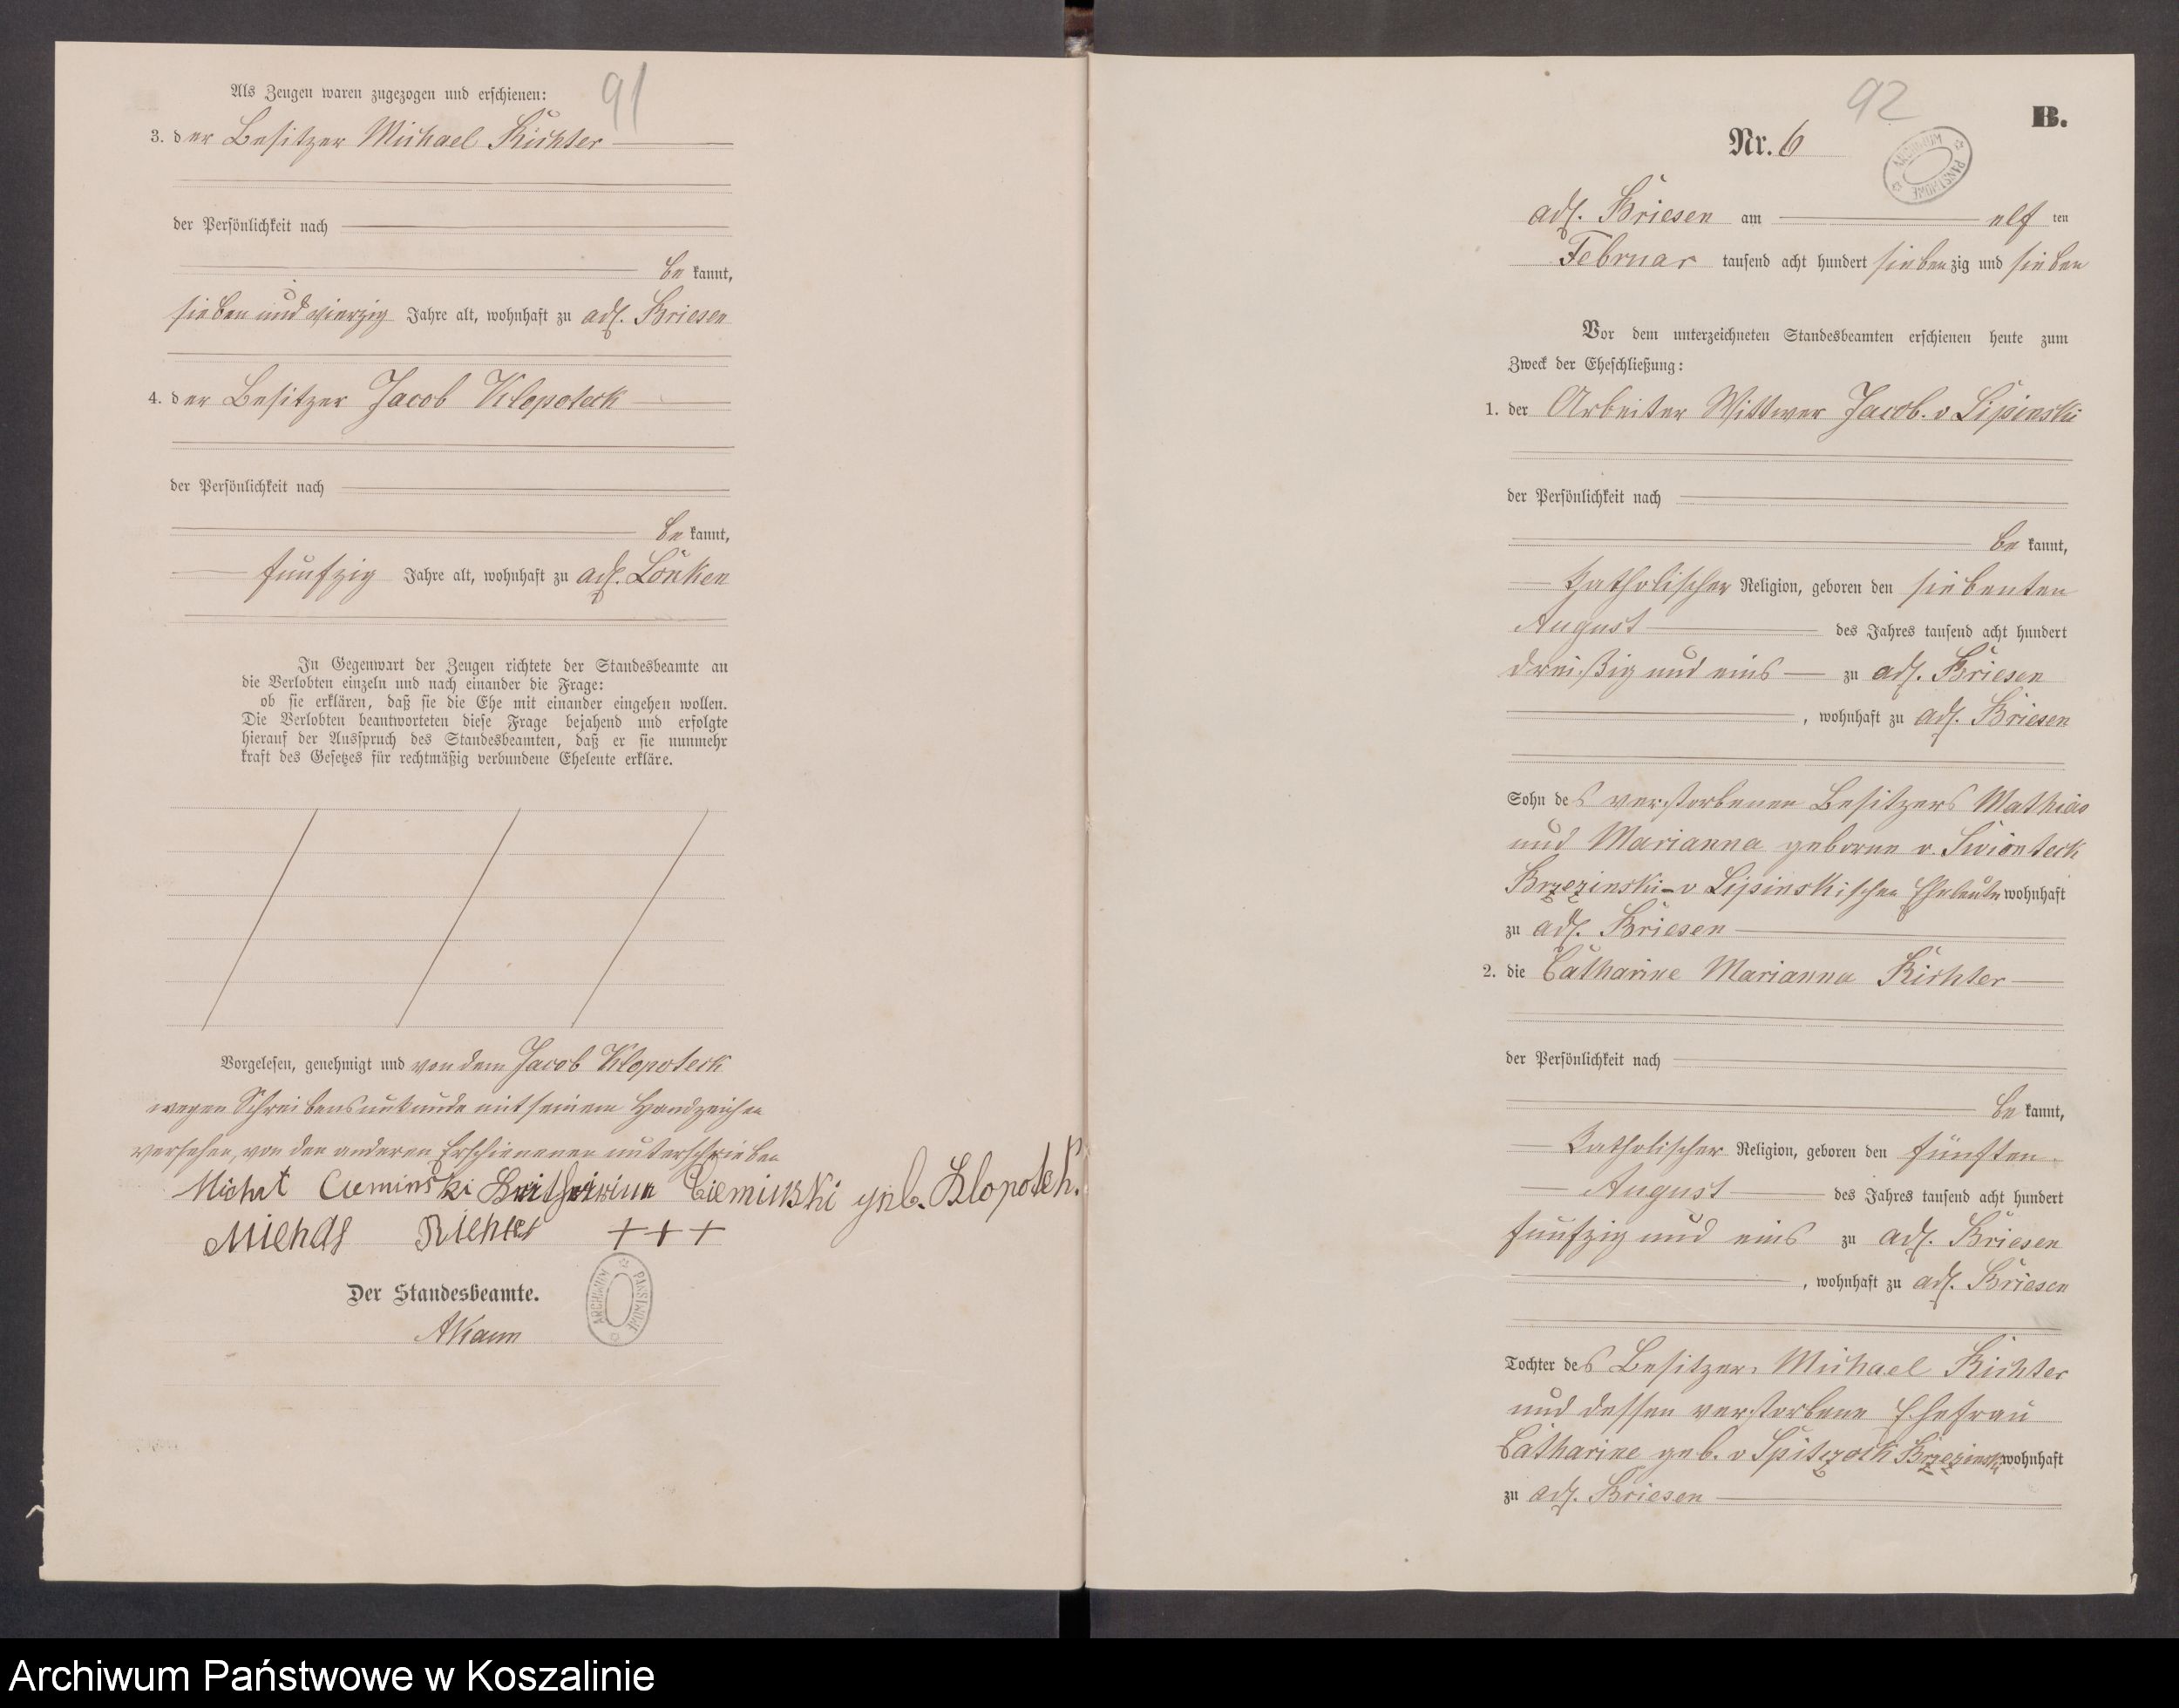 91
Als Zeugen waren zugezogen und erschienen:
3. der Besitzer Michael Richter
der Persönlichkeit nach
be kannt,
sieben und vierzig Jahre alt, wohnhaft zu adl. Briesen
4. der Besitzer Jacob Klopoteck
der Persönlichkeit nach
be kannt,
funfzig Jahre alt, wohnhaft zu adl. Lonken
In Gegenwart der Zeugen richtete der Standesbeamte an
die Verlobten einzeln und nach einander die Frage:
ob sie erklären, daß sie die Ehe mit einander eingehen wollen.
Die Verlobten beantworteten diese Frage bejahend und erfolgte
hierauf der Ausspruch des Standesbeamten, daß er sie nunmehr
kraft des Gesetzes für rechtmäßig verbundene Eheleute erkläre.
Vorgelesen, genehmigt und von dem Jacob Klopoteck
wegen Schreibensunkunde mit seinem Handzeichen
versehen, von den anderen Erschienenen unterschrieben
Michat Ciemiński Ciemiński geb. Klopotek.
Richter +++
Der Standesbeamte.
ARCHIWUM PAŃSTWOWE
92
B.
Nr. 6
ARCHIWUM PAŃSTWOWE
adl. Briesen am elf ten
Februar tausend acht hundert siebenzig und sieben
Vor dem unterzeichneten Standesbeamten erschienen heute zum
Zweck der Eheschließung:
1. der Arbeiter Wittwer Jacob v Lipinski
der Persönlichkeit nach
be kannt,
Katholischer Religion, geboren den siebenten
August des Jahres tausend acht hundert
dreißig und eins zu adl. Briesen
, wohnhaft zu adl. Briesen
Sohn des verstorbenen Besitzers Mathias
und Marianna geborne v. Swionteck
Brzezinski-v Lipinskischen Eheleute wohnhaft
zu adl. Briesen
2. die Catharine Marianna Richter
der Persönlichkeit nach
be kannt,
Katholischer Religion, geboren den fünften
August des Jahres tausend acht hundert
funfzig und eins zu adl. Briesen
, wohnhaft zu adl. Briesen
Tochter des Besitzers Michael Richter
und dessen verstorbene Ehefrau
Catharine geb. v Spiczack Brzezinski wohnhaft
zu adl. Briesen
Archiwum Państwowe w Koszalinie